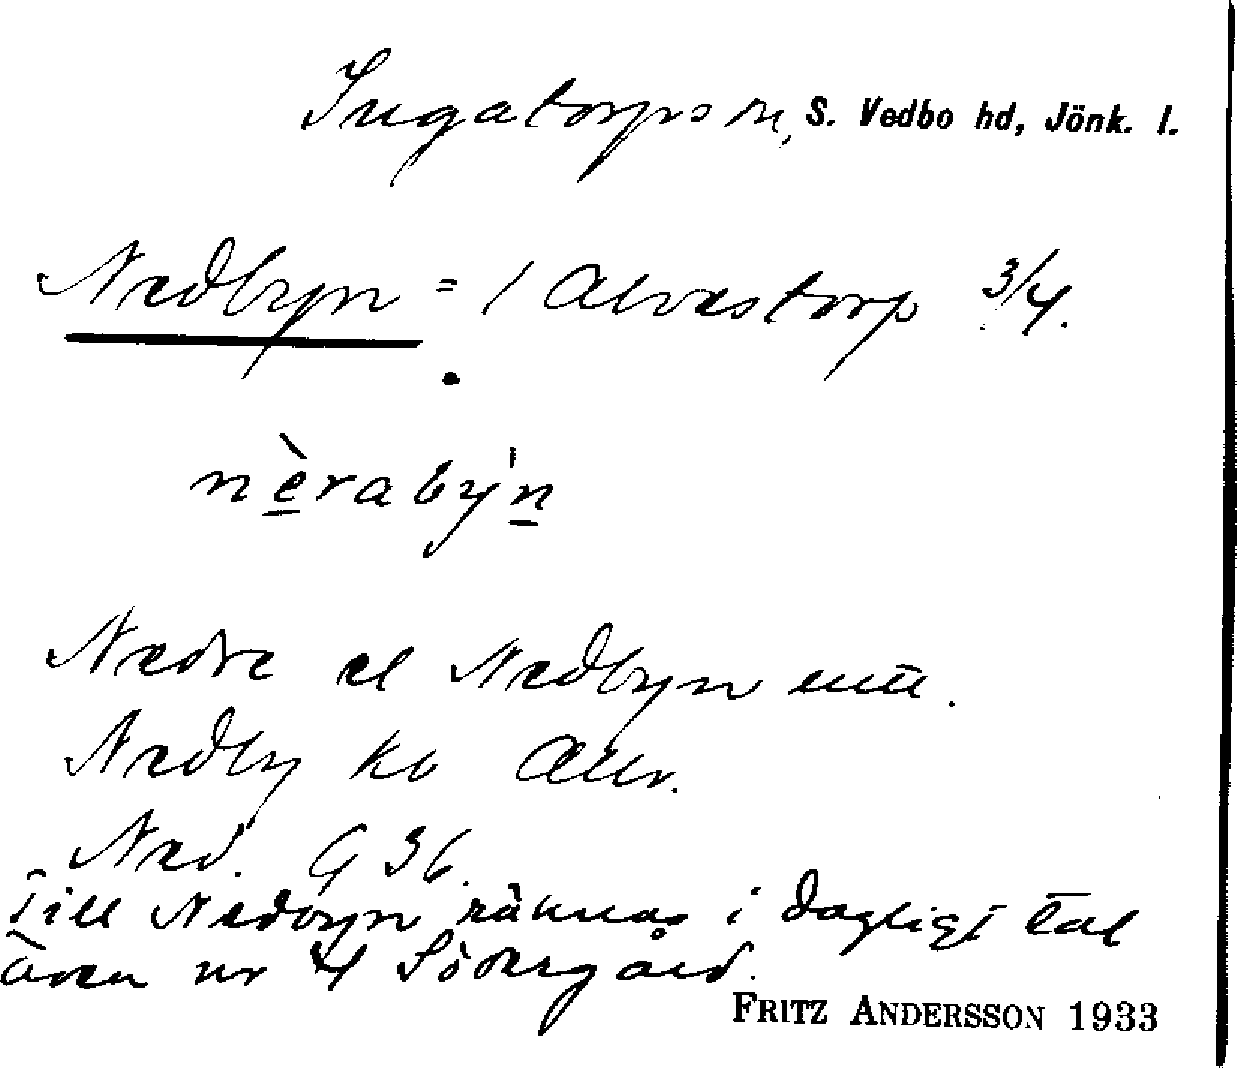 Ingatorps sn, S. Vedbo hd, Jönk. l.
Nedbyn = 1 Alvastorp 3/4.
nèrabýn
Nedre el Nedbyn uttl.
Nedby kb
Ned. G 36.
Till Nedbyn räknas i dagligt tal
även nr 4 Södergård.
FRITZ ANDERSSON 1933